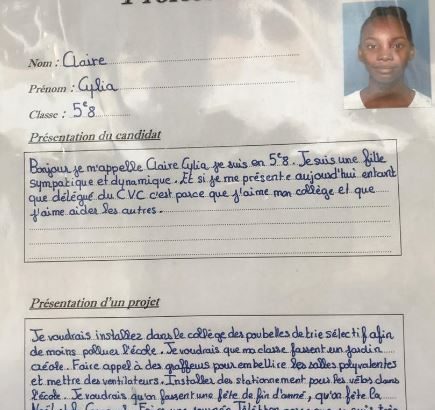 Nom : Claire
Prénom : Cylia
Classe : 5e8
Présentation du candidat
Bonjour je m'appelle Claire Cylia je suis en 5e8. Je suis une fille
sympatique et dynamique. Et si je me présente aujourd'hui entant
que délégué du CVC c'est parce que j'aime mon collège et que
j'aime aider les autres.
Présentation d'un projet
Je voudrais installez dans le collège des poubelles de trie sélectif afin
de moins polluer l'école. Je voudrais que ma classe fassent un jardin
créole. Faire appel à des graffeurs pour embellire les salles polyvalentes
et mettre des ventilateurs. Installer des stationnement pour les vélos dans
l'école. Je voudrais qu'on fassent une fête de fin d'année, qu'on fête la